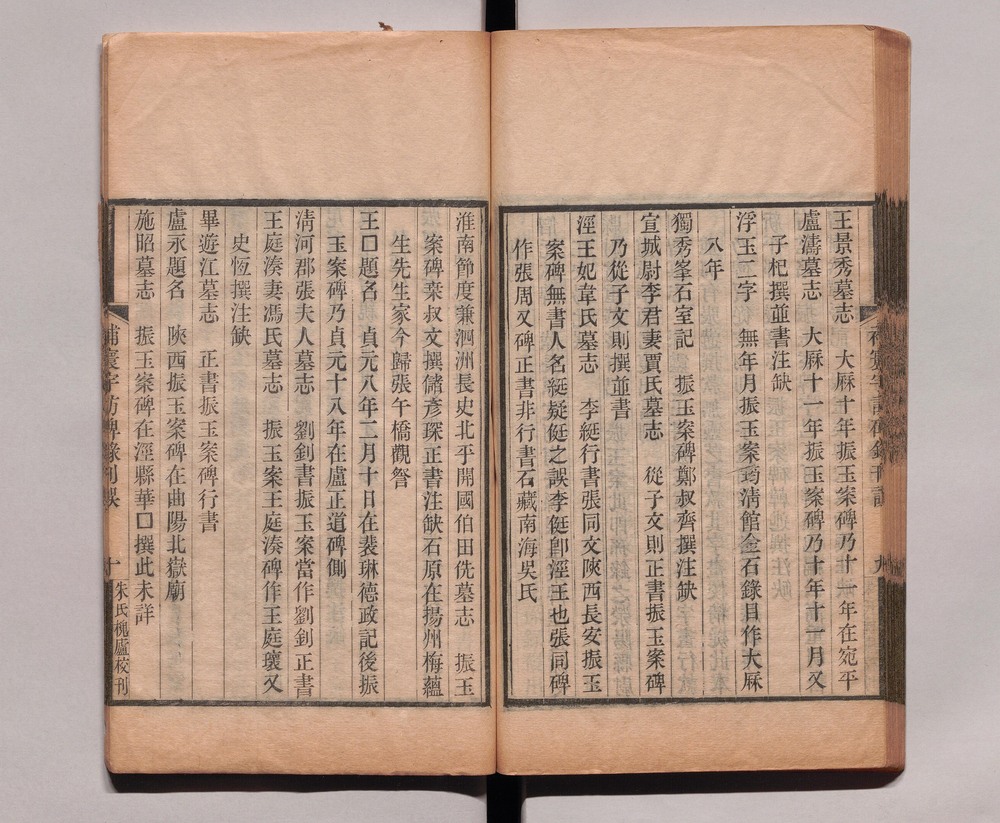 王景秀墓志　大厤十年振玉案碑乃十一年在宛平
盧濤墓志　大厤十一年振玉案碑乃十年十一月又
子杞撰並書注缺
浮玉二字　無年月振玉案筠淸館金石錄目作大厤
八年
獨秀峯石室記　振玉案碑鄭叔齊撰注缺
宣城尉李君妻賈氏墓志　從子文則正書振玉案碑
乃從子文則撰並書
涇王妃韋氏墓志　李綎行書張同文陝西長安振玉
案碑無書人名綎疑侹之誤李侹卽涇王也張同碑
作張周又碑正書非行書石藏南海吳氏
淮南節度兼泗洲長史北平開國伯田侁墓志　振玉
案碑棄叔文撰儲彥琛正書注缺石原在揚州梅蘊
生先生家今歸張午橋觀詧
王口題名　貞元八年二月十日在裴琳德政記後振
玉案碑乃貞元十八年在盧正道碑側
淸河郡張夫人墓志　劉釗書振玉案當作劉釗正書
王庭湊妻馮氏墓志　振玉案王庭湊碑作王庭瓌又
史恆撰注缺
畢遊江墓志　正書振玉案碑行書
盧永題名　陝西振玉案碑在曲陽北嶽廟
施昭墓志　振玉案碑在涇縣華口撰此未詳
補寰宇訪碑錄刊誤
十
朱氏槐廬校刊